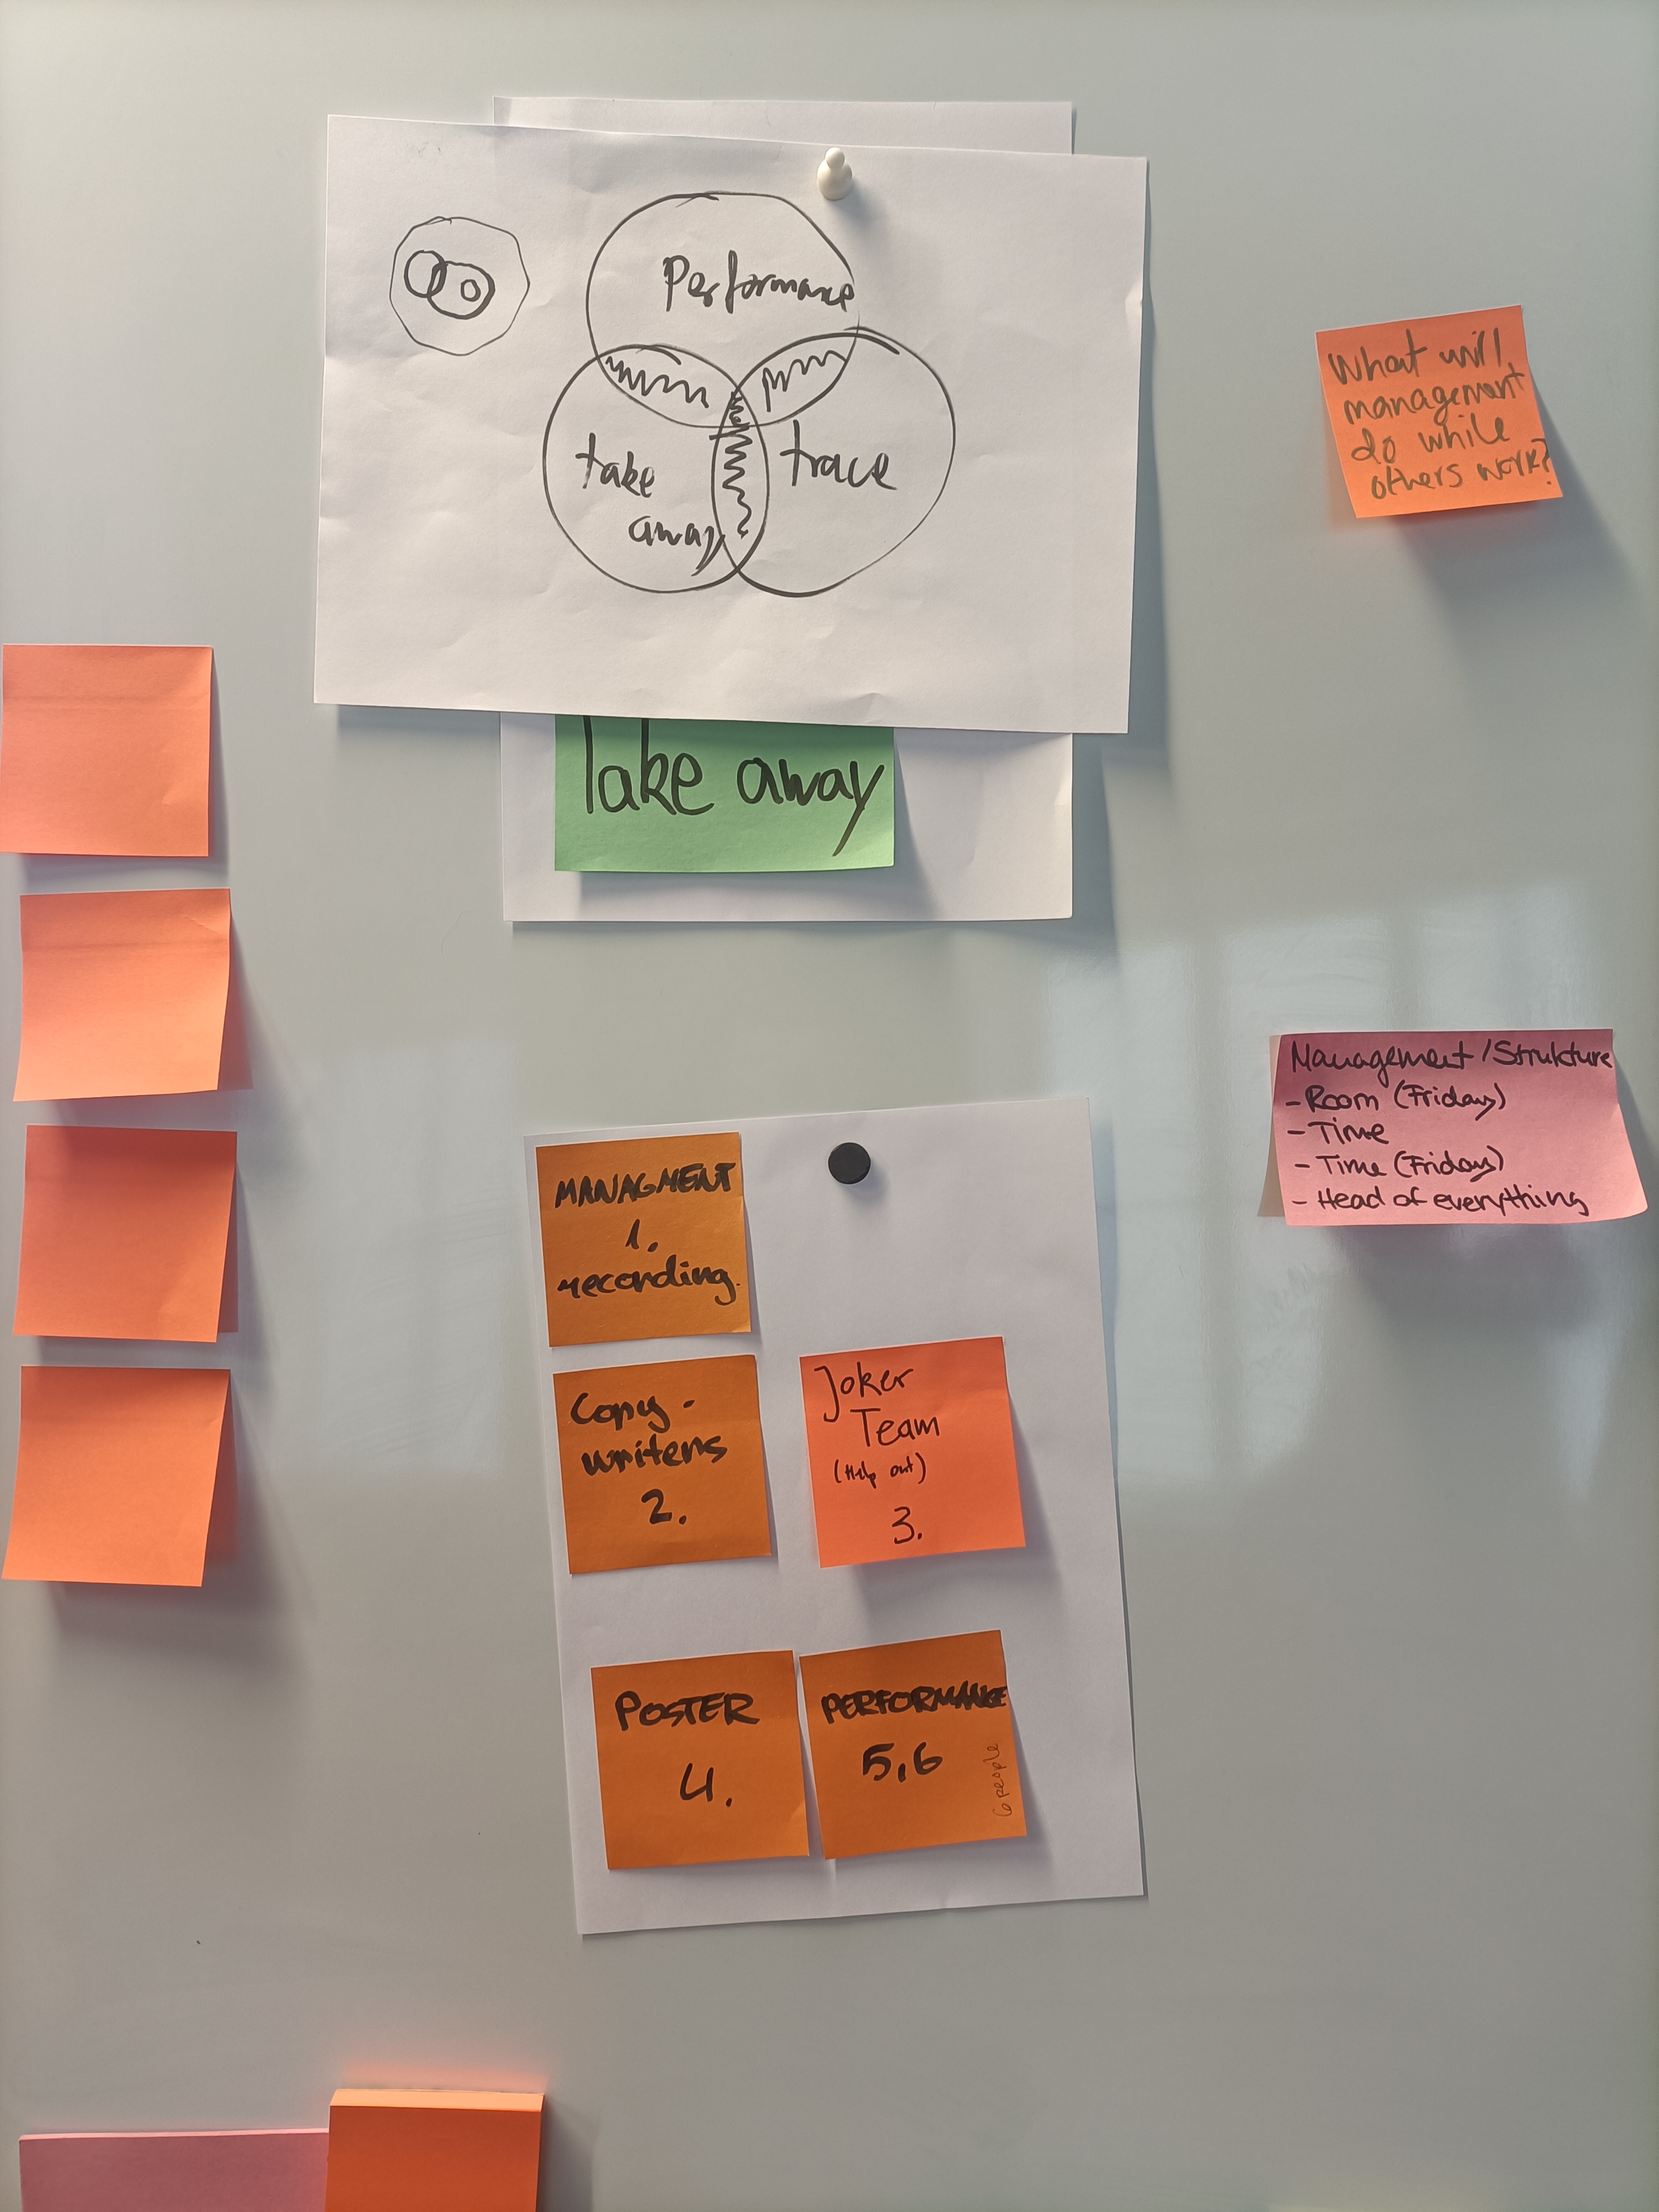 Performance
take
away
trace
Take away
What will
management
do while
others work?
Management / Strukture
- Room (Friday)
- Time
- Time (Friday)
- Head of everything
MANAGMENT
1.
recording.
Copy-
writers
2.
Joker
Team
(Help out)
3.
POSTER
4.
PERFORMANCE
5,6
6 people